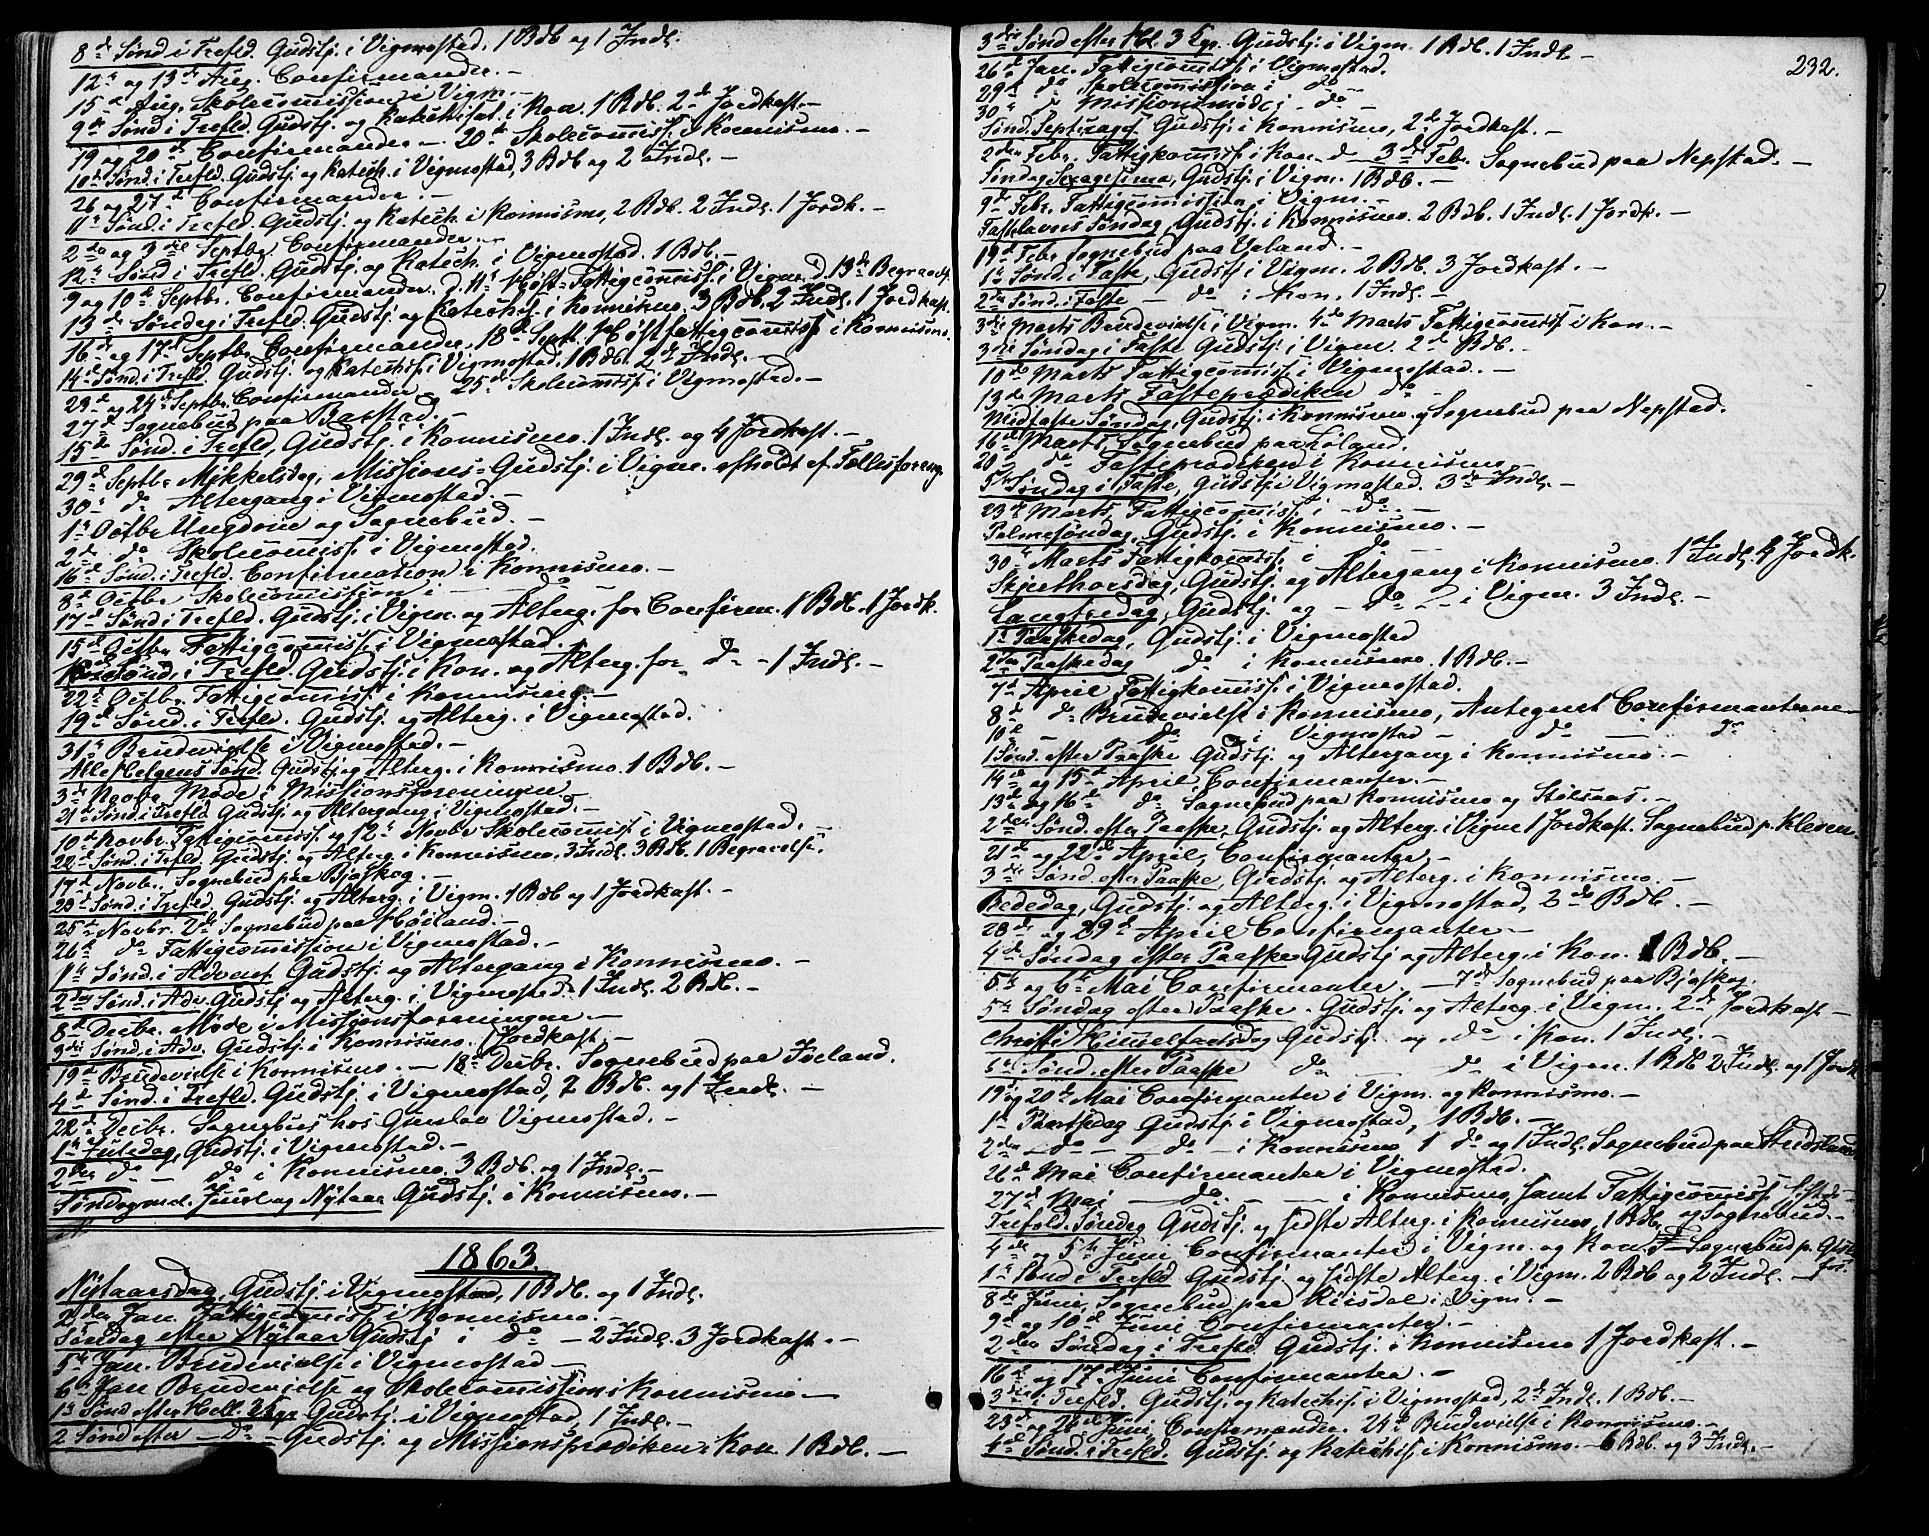 8d Sønd i Trefld. Gudstj. i Vigmostad. 1 Bdb og 1 Indl.
12te og 13de Aug. Confirmander. –
15d Aug. Skolecomission i Vigm. –
9de Sønd i Trefld. Gudstj. og Katechisat. i Kon. 1 Bdb. 2de Jordkast. –
19 og 20d Confirmander. – 20d Skolecomiss. i Konnismo. –
10de Sønd. i Trefld. Gudstj. og Katech. i Vigmostad, 3 Bdb og 2 Indl. –
26 og 27d Confirmander. –
11te Sønd. i Trefld. Gudstj. og Katech. i Konnismo, 2 Bdb. 2 Indl. 1 Jordk. –
2den og 3die Septbr. Confirmander. –
12te Sønd i Trefld. Gudstj. og Katech. i Vigmostad. 1 Bdb. –
9 og 10d Septbr. Confirmander. d. 11te Høst-Fattigcomiss. i Vigm. d. 13d Begravels.
13de Søndag i Trefld. Gudstj. og Katechis. i Konnismo. 3 Bdb. 2 Indl. 1 Jordkast.
16d og 17d Septbr Confirmander. 18d Septb. Høstfattigcomiss i Konnismo.
14de Sønd. i Trefld. Gudstj. og Katechis. i Vigmostad. 1 Bdb. 2de Indl. –
23d og 24d Septbr. Confirmander. 25d Skolecomiss. i Vigmostad. –
27d Sognebud paa Barstad. –
15de Sønd. i Trefld, Gudstj. i Konnismo. 1 Indl. og 4 Jordkast. –
29d Septbr Mikkelsdag, Missions-Gudstj. i Vigm. afholdt af Fællesforeng.
30te do Altergang i Vigmostad. –
1te Octbr. Ungdom og Sognebud. –
2d do Skolecomiss. i Vigmostad.
16d Sønd. i Trefld. Confirmation i Konnismo. –
8d Octbr. Skolecomission i – do –
17d Sønd i Trefld. Gudstj. i Vigm. og Alterg. for Confirm. 1 Bdb. 1 Jordk.
15d Octbr. Fattigcomiss. i Vigmostad. –
Sønd. i Trefld. Gudstj. i Kon. og Alterg. for do – 1 Indl. –
22d Octbr. Fattigcomiss i Konnismo. –
19d Sønd. i Trefld. Gudstj. og Alterg. i Vigmostad.
31te Brudevielse i Vigmostad. –
Alle Helgens Sønd. Gudstj og Alterg. i Konnismo. 1 Bdb. –
3d Novbr. Møde i Missionsforeningen
21de Sønd. i Trefld Gudstj. og Altergang i Vigmostad. –
10d Novbr. Fattigcomiss. og 12te Novbr Skolecomiss. i Vigmostad. –
22d Sønd. i Trefld. Gudstj. og Alterg. i Konnismo. 3 Indl. 3 Bdb. 1 Begravelse.
17d Novbr. Sognebud paa Bjaskog. –
23d Sønd. i Trefld. Gudstj. og Alterg. i Vigm. 1 Bdb og 1 Jordkast. –
25d Novbr. 2de Sognebud paa Høiland. –
26d do Fattigcomission i Vigmostad. –
1te Sønd. i Advent Gudstj. og Altergang i Konnismo. –
2den Sønd. i Adv. Gudstj. og Alterg. i Vigmostad. 1 Indl. 2 Bdb. –
8d Decbr. Møde i Missionsforeningen. –
3die Sønd. i Adv. Gudstj. i Konnismo. 1 Jordkast. –
19d Brudevielse i Konnismo. – 18d Decbr. Sognebud paa Iveland.
4d Sønd. i Trefld. Gudstj. i Vigmostad, 2 Bdb. og 1 Indl. –
22d Decbr. Sognebud hos Gunlov Vigmostad. –
1te Juledag, Gudstj. i Vigmostad. –
2den do – do i Konnismo. 3 Bdb. og 1 Indl. –
Søndag ml. Juul og Nytaar Gudstj. i Konnismo. –
1863.
Nytaarsdag, Gudstj. i Vigmostad, 1 Bdb. og 1 Indl.
2den Jan. Fattigcomiss. i Konnismo.
Søndag efter Nytaar Gudstj i do – 2 Indl. 3 Jordkast. –
5te Jan. Brudevielse i Vigmostad –
6te Jan Brudevielse og Skolecomission i Konnismo –
1te Sønd efter Hell. 3 Kgr Gudstj. i Vigmostad, 1 Indl. –
2 Sønd efter – do – Gudstj. og Missionsprædiken i Kon. 1 Bdb. –
232.
3die Sønd efter Hel. 3 Kgr. Gudstj. i Vigm. 1 Bdb. 1 Indl. –
26d Jan. Fattigcomiss. i Vigmostad.
29d do Skolecomission i do –
30te do Missionsmøde i – do –
Sønd. Septuages. Gudstj. i Konnismo, 2de Jordkast. –
2den Febr. Fattigkomiss. i Kon. d. 3de Febr. Sognebud paa Nepstad. –
Søndag Sexagesima, Gudstj. i Vigm. 1 Bdb. –
9d Febr. Fattigcomission i Vigm. –
Fastelavns Søndag, Gudstj. i Konnismo. 2 Bdb. 1 Indl. 1 Jordk. –
19d Febr. Sognebud paa Ueland. –
1te Sønd. i Faste, Gudstj. i Vigm. 2 Bdb. 3 Jordkast. –
2den Sønd. i Faste – do i Kon. 1 Indl. –
3die Marts Brudevielse i Vigm. 4de Marts Fattigcomiss i Kon. –
3die Søndag i Faste Gudstj. i Vigm. 2d Bdb. –
10de Marts Fattigcomiss i Vigmostad. –
13de Marts Fasteprædiken do –
Midfaste Søndag, Gudstj. i Konnismo. og Sognebud paa Nepstad.
16de Marts, Sognebud paa Løland.
20d do Fasteprædiken i Konnismo
5te Søndag i Faste, Gudstj. i Vigmostad. 3de Indl. –
23d Marts, Fattigcomiss. i – do –
Palmesøndag, Gudstj. i Konnismo. –
30te Marts Fattigkomiss. i do
Skjærthorsdag, Gudstj. og Altergang i Konnismo. 1 Indl. 4 Jordk.
Langfredag, Gudstj. og – do – i Vigm. 3 Indl. –
1te Paaskedag, Gudstj. i Vigmostad
2den Paaskedag do i Konnismo. 1 Bdb. –
7d April Fattigkomiss. i Vigmostad.
8d do Brudevielse i Konnismo, Antegnet Confirmanterne –
10d – do i Vigmostad – do – do
1 Sønd. efter Paaske Gudstj. og Altergang i Konnismo. –
14d og 15d April, Confirmanter. –
13d og 16d do Sognebud paa Konnismo og Stølsaas. –
2den Sønd. efter Paaske, Gudstj. og Alterg. i Vigm 1 Jordkast. Sognebud p. Kleven.
21d og 22d April, Confirmanter. –
3die Sønd. efter Paaske, Gudstj. og Alterg. i Konnismo. –
Bededag, Gudstj. og Alterg. i Vigmostad, 2de Bdb. –
28d og 29d April Confirmanter –
4de Søndag efter Paaske Gudstj. og Alterg. i Kon. 1 Bdb. –
5te og 6te Mai Confirmanter. – 7de Sognebud paa Bjaskog.
5te Søndag efter Paaske. Gudstj. og Alterg. i Vigm. 2de Jordkast –
Christi Himmelfartsdag Gudstj. og do i Kon. 1 Indl. –
6te Sønd. efter Paaske do – do i Vigm. 1 Bdb 2 Indl. og 1 Jordk
19 og 20de Mai Confirmanter i Vigm. og Konnismo. –
1te Pintsedag Gudstj. i Vigmostad, 1 Bdb. –
2den – do – do – i Konnismo 1 do og 1 Indl. Sognebud paa Studsland
26d Mai Confirmanter i Vigmostad.
27d Mai – do – i Konnismo, samt Fattigcomiss. sidste –
Trefold. Søndag Gudstj. og sidste Alterg. i Konnismo, 1 Bdb. og Sognebud. –
4de og 5te Juni Confirmanter i Vigm. og Kon. Sognebud p.
1te Sønd i Trefld Gudstj. og sidste Alterg. i Vigm. 2 Bdb og 2 Indl. –
8d Juni, Sognebud paa i Vigm. –
9d og 10d Juni Confirmanter. –
2den Søndag i Trefld. Gudstj. i Konnismo 1 Jordkast. –
16d og 17d Juni Confirmanter. –
3die i Trefld. Gudstj. og Katechis. i Vigmostad, 2d Indl. 1 Bdb. –
23d og 26d Juni, Confirmander. 24d Brudevielse i Konnismo. –
4d Sønd. i Trefld. Gudstj. og Katechis. i Konnismo. – 6 Bdb. og 3 Indl. –